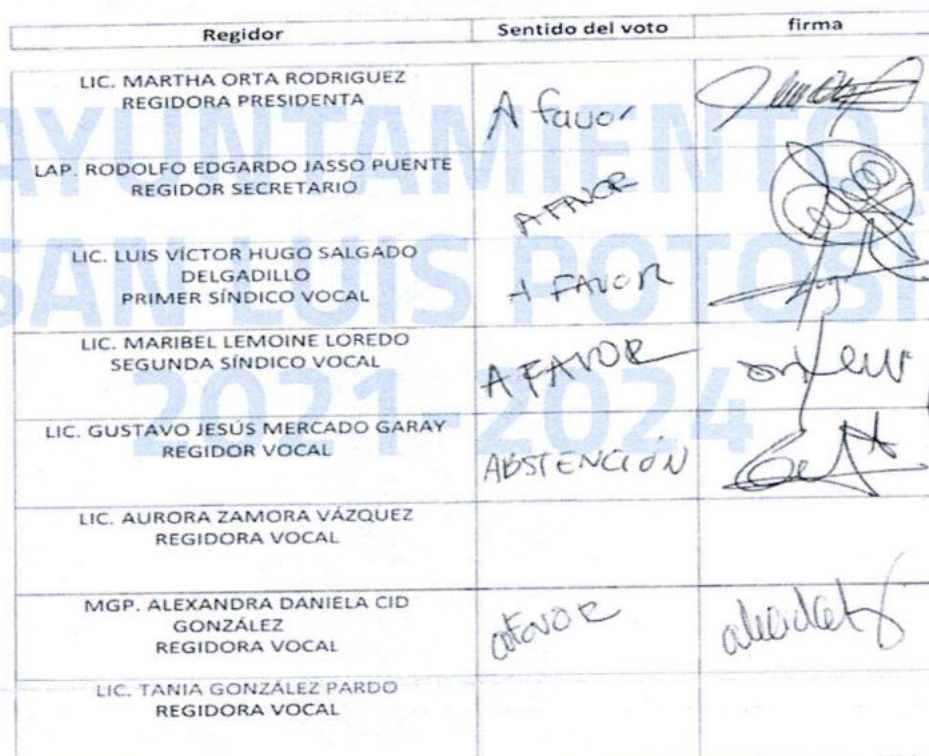 Regidor Sentido del voto firma
LIC. MARTHA ORTA RODRIGUEZ
REGIDORA PRESIDENTA
A favor
LAP. RODOLFO EDGARDO JASSO PUENTE
REGIDOR SECRETARIO
A FAVOR
LIC. LUIS VÍCTOR HUGO SALGADO
DELGADILLO
PRIMER SÍNDICO VOCAL
A FAVOR
LIC. MARIBEL LEMOINE LOREDO
SEGUNDA SÍNDICO VOCAL
A FAVOR
LIC. GUSTAVO JESÚS MERCADO GARAY
REGIDOR VOCAL
ABSTENCIÓN
LIC. AURORA ZAMORA VÁZQUEZ
REGIDORA VOCAL
MGP. ALEXANDRA DANIELA CID
GONZÁLEZ
REGIDORA VOCAL
a favor
LIC. TANIA GONZÁLEZ PARDO
REGIDORA VOCAL
AYUNTAMIENTO
SAN LUIS POTOSÍ
2021-2024